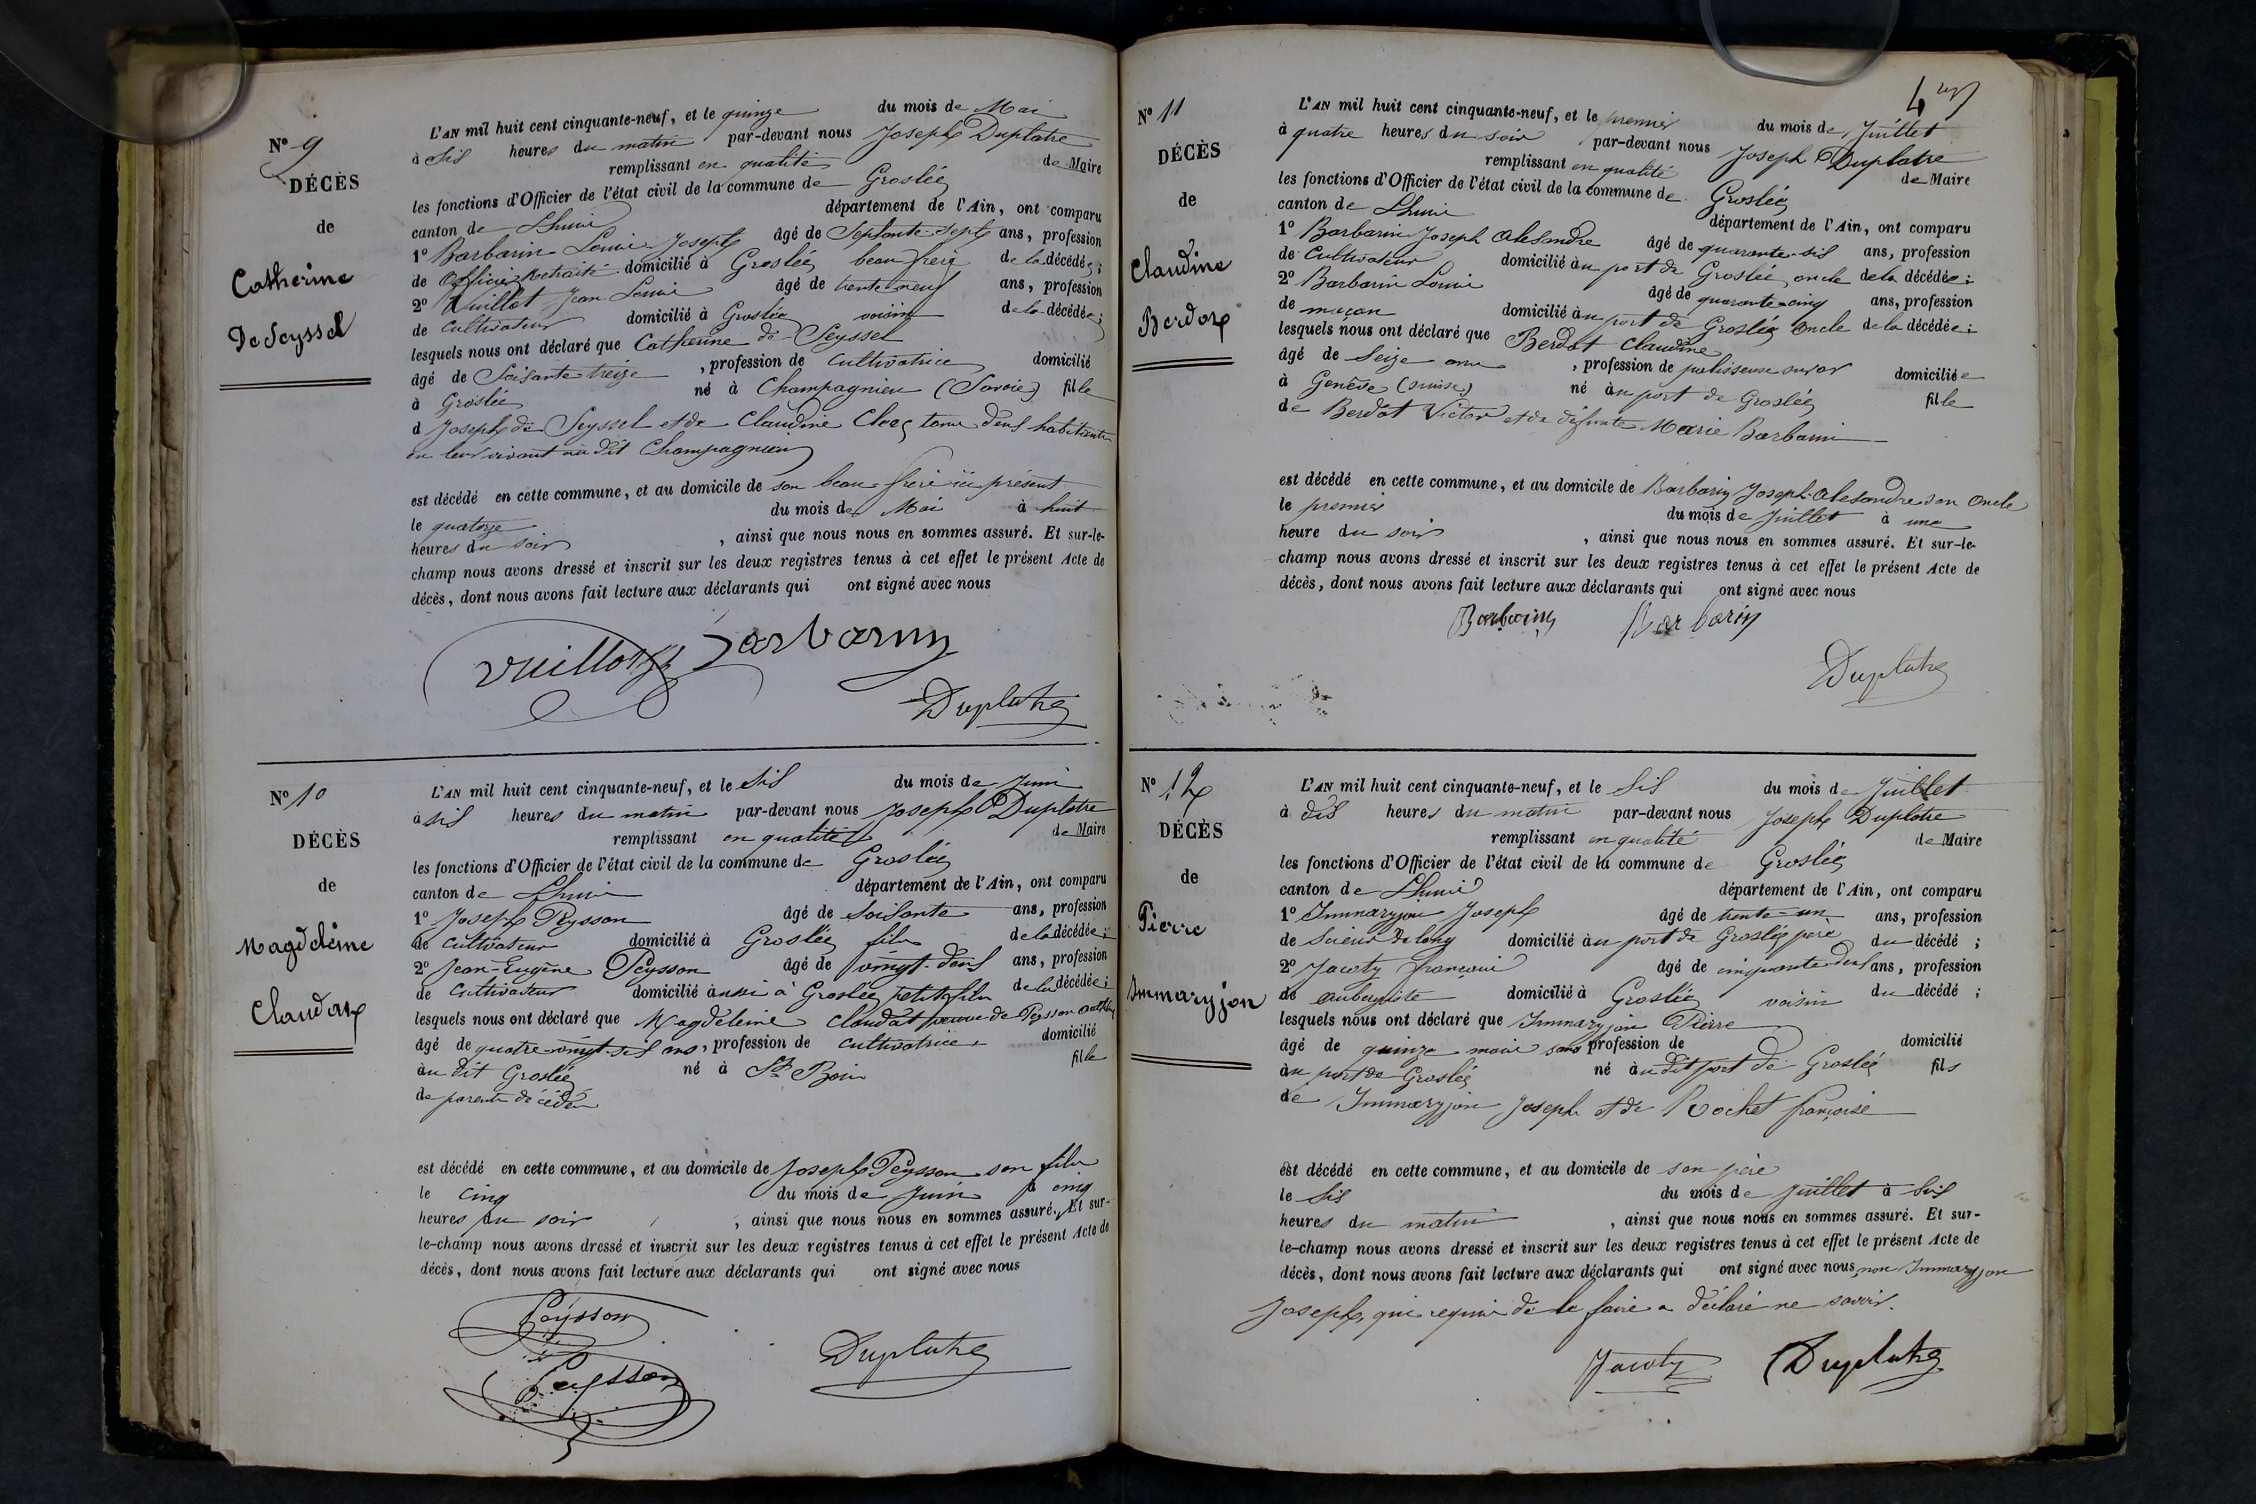 Nº 9
DÉCÈS
de
Catherine
De Seyssel
L'AN mil huit cent cinquante-neuf, et le quinze du mois de Mai
à sis heures du matin par-devant nous Joseph Duplatre
remplissant en qualité de Maire
les fonctions d'Officier de l'état civil de la commune de Groslée
canton de Lhuis département de l'Ain, ont comparu
1º Barbarin Louis Joseph âgé de Septante-sept ans, profession
de Officier retraité domicilié à Groslée beau frère de la décédée;
2º Vuillot Jean Louis âgé de trente neuf ans, profession
de cultivateur domicilié à Groslée voisin de la décédée;
lesquels nous ont déclaré que Catherine de Seyssel
âgé de Soisante treize, profession de cultivatrice domicilié
à Groslée né à Champagnieu (Savoie) fille
d Joseph de Seyssel et de Claudine Cloeq tous deus habitants
en leur vivant au dit Champagnieu
est décédé en cette commune, et au domicile de son beau frère ici présent
le quatorze du mois de Mai à huit
heures du soir, ainsi que nous nous en sommes assuré. Et sur-le-
champ nous avons dressé et inscrit sur les deux registres tenus à cet effet le présent Acte de
décès, dont nous avons fait lecture aux déclarants qui ont signé avec nous
Vuillot Barbarin
Duplatre
Nº 10
DÉCÈS
de
Magdeleine
Claudat
L'AN mil huit cent cinquante-neuf, et le sis du mois de Juin
à sis heures du matin par-devant nous Joseph Duplatre
remplissant en qualité de Maire
les fonctions d'Officier de l'état civil de la commune de Groslée
canton de Lhuis département de l'Ain, ont comparu
1º Joseph Peysson âgé de soisante ans, profession
de cultivateur domicilié à Groslée fils de la décédée;
2º Jean-Eugène Peysson âgé de vingt-deus ans, profession
de cultivateur domicilié aussi à Groslée petit fils de la décédée;
lesquels nous ont déclaré que Magdeleine Claudat veuve de Peysson
âgé de quatre-vingt-sis ans, profession de cultivatrice, domicilié
au dit Groslée né à St Boin fille
de parents décédés
est décédé en cette commune, et au domicile de Joseph Peysson son fils
le cinq du mois de Juin à cinq
heures du soir, ainsi que nous nous en sommes assuré. Et sur-
le-champ nous avons dressé et inscrit sur les deux registres tenus à cet effet le présent Acte de
décès, dont nous avons fait lecture aux déclarants qui ont signé avec nous
Peysson
Duplatre
Peysson
4
Nº 11
DÉCÈS
de
Claudine
Berdot
L'AN mil huit cent cinquante-neuf, et le premier du mois de Juillet
à quatre heures du soir par-devant nous Joseph Duplatre
remplissant en qualité de Maire
les fonctions d'Officier de l'état civil de la commune de Groslée
canton de Lhuis département de l'Ain, ont comparu
1º Barbarin Joseph Alesandre âgé de quarante-sis ans, profession
de Cultivateur domicilié au port de Groslée oncle de la décédée;
2º Barbarin Louis âgé de quarante-cinq ans, profession
de maçon domicilié au port de Groslée oncle de la décédée;
lesquels nous ont déclaré que Berdot Claudine
âgé de Seize ans, profession de polisseuse sur or domiciliée
à Genève (Suisse) né au port de Groslée fille
de Berdot Victor et de défunte Marie Barbarin
est décédé en cette commune, et au domicile de Barbarin Joseph-Alesandre son oncle
le premier du mois de Juillet à une
heure du soir, ainsi que nous nous en sommes assuré. Et sur-le-
champ nous avons dressé et inscrit sur les deux registres tenus à cet effet le présent Acte de
décès, dont nous avons fait lecture aux déclarants qui ont signé avec nous
Barbarin Barbarin
Duplatre
Nº 12
DÉCÈS
de
Pierre
Immaryjon
L'AN mil huit cent cinquante-neuf, et le Sis du mois de Juillet
à dis heures du matin par-devant nous Joseph Duplatre
remplissant en qualité de Maire
les fonctions d'Officier de l'état civil de la commune de Groslée
canton de Lhuis département de l'Ain, ont comparu
1º Immaryjon Joseph âgé de trente-un ans, profession
de scieur de long domicilié au port de Groslée père du décédé;
2º Jacoty françois âgé de cinquante-deus ans, profession
de aubergiste domicilié à Groslée voisin du décédé;
lesquels nous ont déclaré que Immaryjon Pierre
âgé de quinze mois sans profession de domicilié
au port de Groslée né au dit port de Groslée fils
de Immaryjon Joseph et de Rochet françoise
est décédé en cette commune, et au domicile de son père
le Sis du mois de Juillet à sis
heures du matin, ainsi que nous nous en sommes assuré. Et sur-
le-champ nous avons dressé et inscrit sur les deux registres tenus à cet effet le présent Acte de
décès, dont nous avons fait lecture aux déclarants qui ont signé avec nous, non Immaryjon
Joseph, qui requis de le faire a déclaré ne savoir.
Jacoty Duplatre